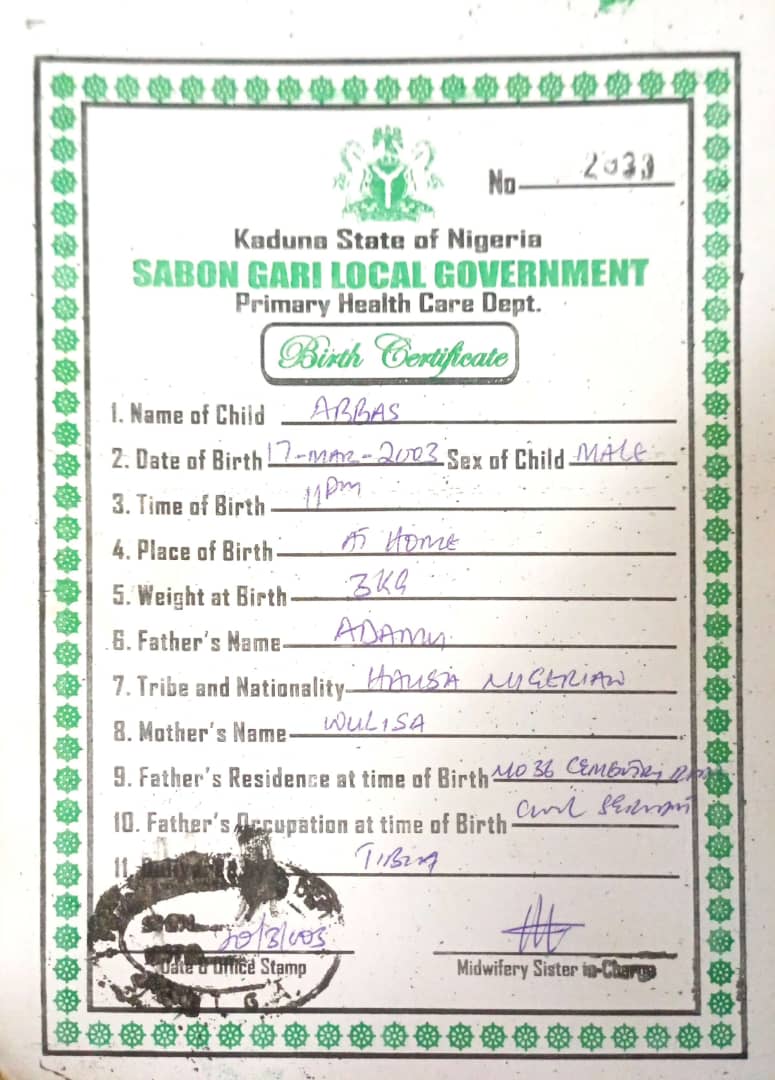 No 2033
Kaduna State of Nigeria
SABON GARI LOCAL GOVERNMENT
Primary Health Care Dept.
Birth Certificate
1. Name of Child ABBAS
2. Date of Birth 17-MAR-2003 Sex of Child MALE
3. Time of Birth 11PM
4. Place of Birth AT HOME
5. Weight at Birth 3KG
6. Father's Name ADAMU
7. Tribe and Nationality HAUSA NIGERIAN
8. Mother's Name WULISA
9. Father's Residence at time of Birth NO 36
10. Father's Occupation at time of Birth CIVIL SERVANT
11.
20/3/003
Date & Office Stamp Midwifery Sister in-Charge